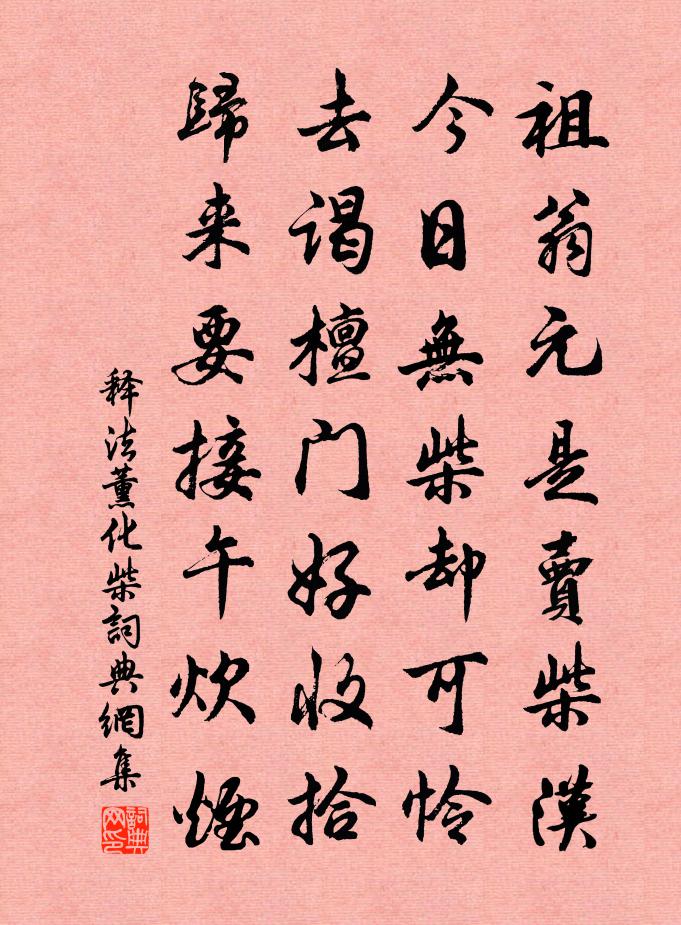 祖翁元是賣柴漢
今日無柴却可怜
去謁檀门好收拾
歸来要接午炊煙
释法薰化柴詞典網集
詞典网印